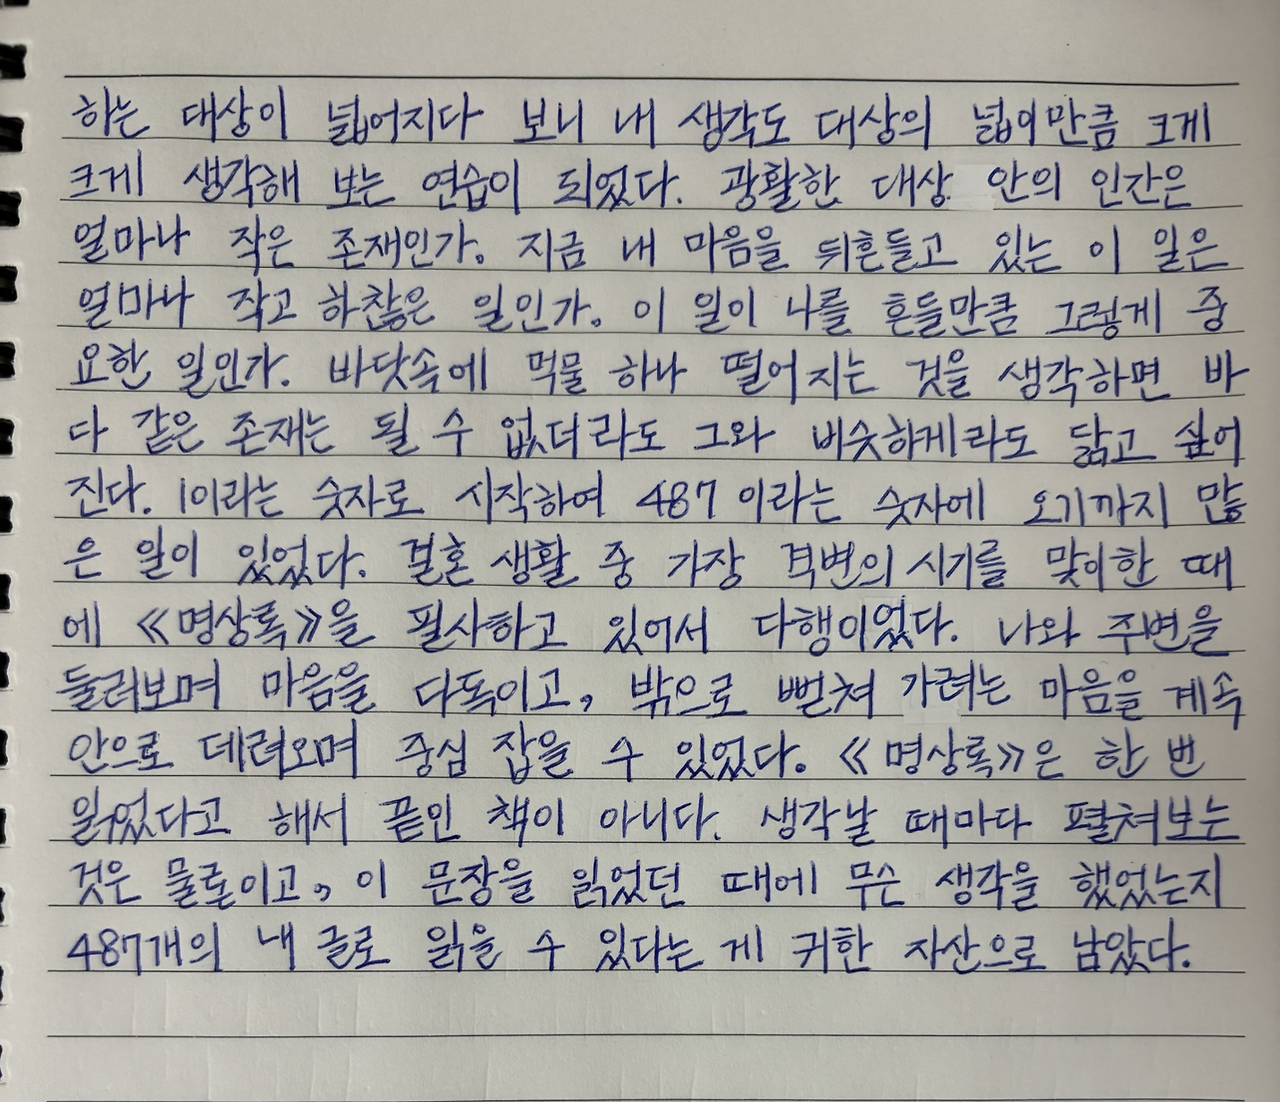 하는 대상이 넓어지다 보니 내 생각도 대상의 넓이만큼 크게
크게 생각해 보는 연습이 되었다. 광활한 대상 안의 인간은
얼마나 작은 존재인가. 지금 내 마음을 뒤흔들고 있는 이 일은
얼마나 작고 하찮은 일인가. 이 일이 나를 흔들만큼 그렇게 중
요한 일인가. 바닷속에 먹물 하나 떨어지는 것을 생각하면 바
다 같은 존재는 될 수 없더라도 그와 비슷하게라도 닮고 싶어
진다. 1이라는 숫자로 시작하여 487이라는 숫자에 오기까지 많
은 일이 있었다. 결혼 생활 중 가장 격변의 시기를 맞이한 때
에 《명상록》을 필사하고 있어서 다행이었다. 나와 주변을
둘러보며 마음을 다독이고, 밖으로 뻗쳐 가려는 마음을 계속
안으로 데려오며 중심 잡을 수 있었다. 《명상록》은 한 번
읽었다고 해서 끝인 책이 아니다. 생각날 때마다 펼쳐보는
것은 물론이고, 이 문장을 읽었던 때에 무슨 생각을 했었는지
487개의 내 글로 읽을 수 있다는 게 귀한 자산으로 남았다.